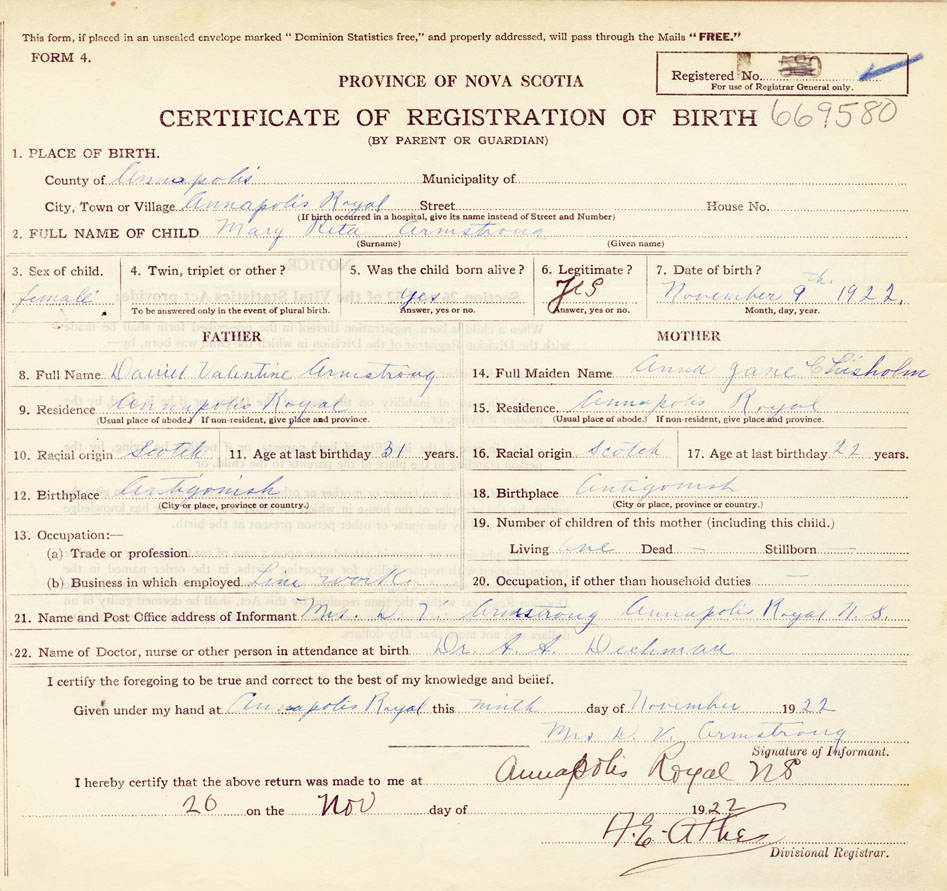 This form, if placed in an unsealed envelope marked "Dominion Statistics free," and properly addressed, will pass through the Mails "FREE."
FORM 4.
Registered No.
For use of Registrar General only.
PROVINCE OF NOVA SCOTIA
CERTIFICATE OF REGISTRATION OF BIRTH 669580
(BY PARENT OR GUARDIAN)
1. PLACE OF BIRTH.
County of Annapolis Municipality of
City, Town or Village Annapolis Royal Street House No.
(If birth occurred in a hospital, give its name instead of Street and Number)
2. FULL NAME OF CHILD Mary Rita Armstrong
(Surname) (Given name)
3. Sex of child. 4. Twin, triplet or other? 5. Was the child born alive? 6. Legitimate? 7. Date of birth?
female yes yes November 9th 1922.
To be answered only in the event of plural birth. Answer, yes or no. Answer, yes or no. Month, day, year.
FATHER MOTHER
8. Full Name Daniel Valentine Armstrong 14. Full Maiden Name Anna Jane Chisholm
9. Residence Annapolis Royal 15. Residence Annapolis Royal
(Usual place of abode.) If non-resident, give place and province. (Usual place of abode.) If non-resident, give place and province.
10. Racial origin Scotch 11. Age at last birthday 31 years. 16. Racial origin Scotch 17. Age at last birthday 22 years.
12. Birthplace Antigonish 18. Birthplace Antigonish
(City or place, province or country.) (City or place, province or country.)
13. Occupation:— 19. Number of children of this mother (including this child.)
(a) Trade or profession Living one Dead — Stillborn —
(b) Business in which employed Line work. 20. Occupation, if other than household duties —
21. Name and Post Office address of Informant Mrs. D. V. Armstrong Annapolis Royal N.S.
22. Name of Doctor, nurse or other person in attendance at birth Dr. Dechman
I certify the foregoing to be true and correct to the best of my knowledge and belief.
Given under my hand at Annapolis Royal this ninth day of November 1922
Mrs D. V. Armstrong
Signature of Informant.
I hereby certify that the above return was made to me at Annapolis Royal NS
20 on the Nov day of 1922
Divisional Registrar.